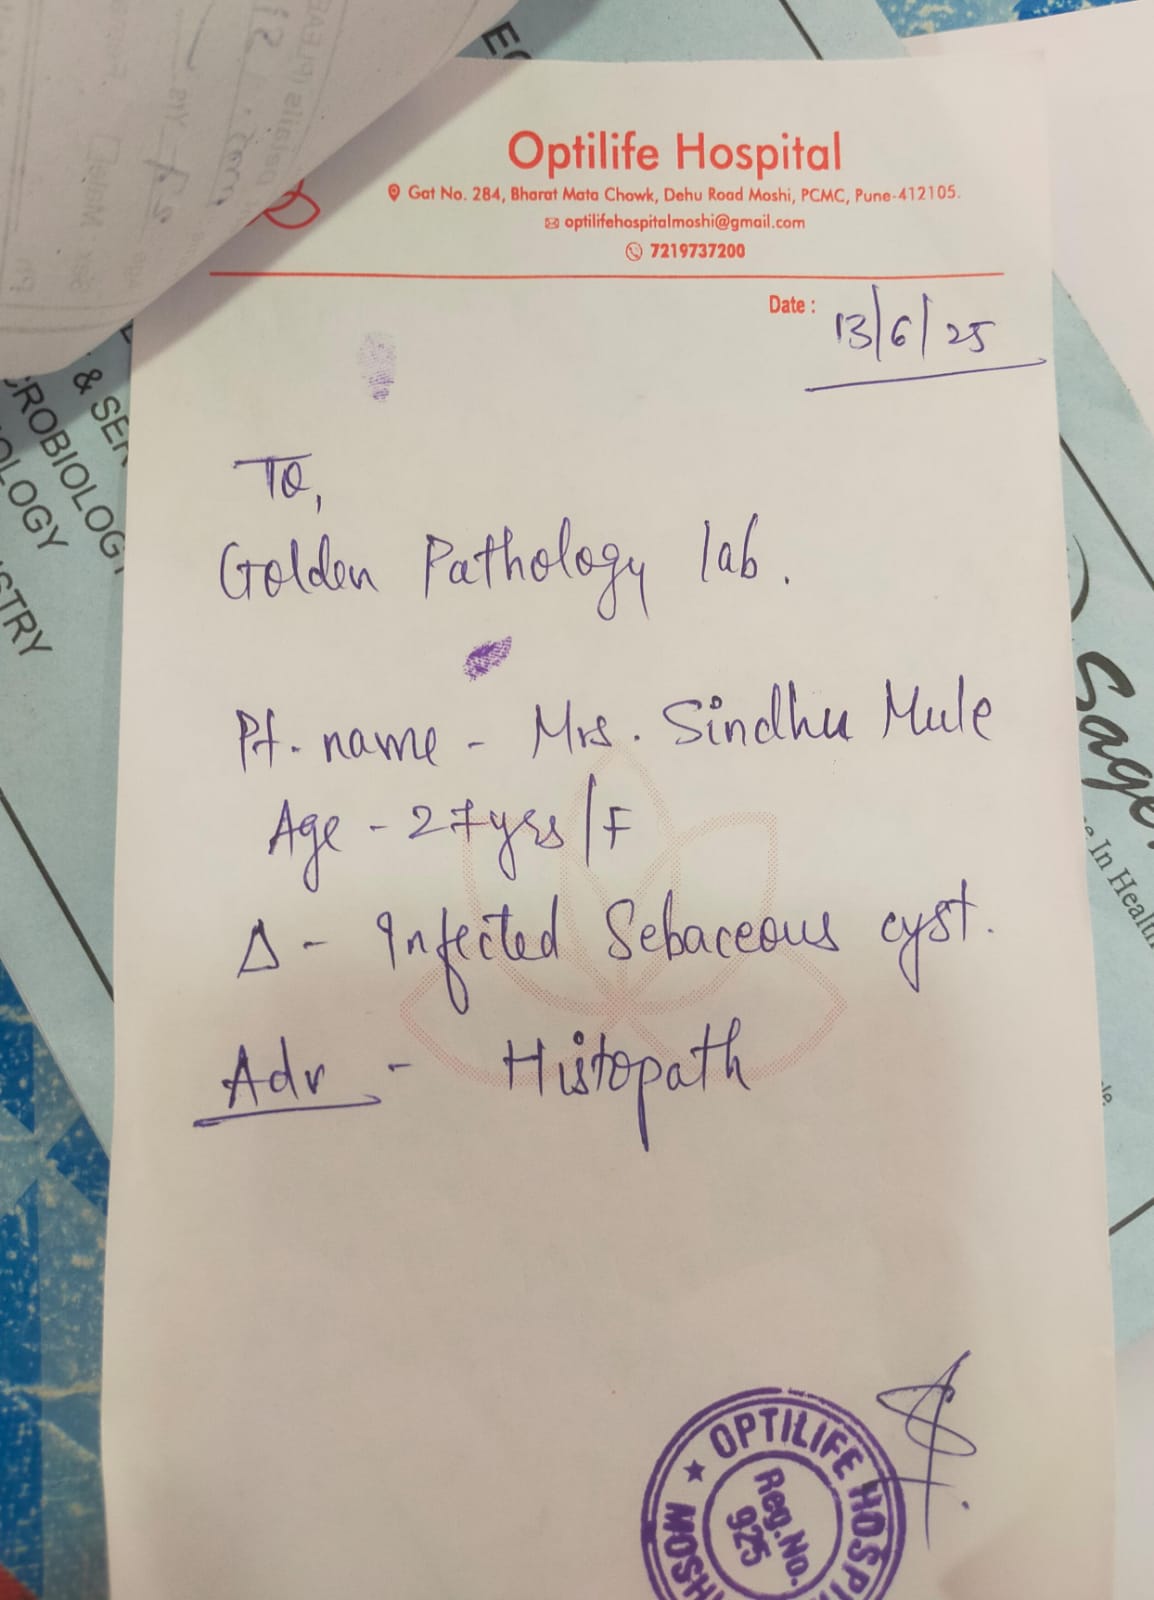 Optilife Hospital
Gat No. 284, Bharat Mata Chowk, Dehu Road Moshi, PCMC, Pune-412105.
optilifehospitalmoshi@gmail.com
7219737200
Date : 13/6/25
To,
Golden Pathology lab.
Pt. name - Mrs. Sindhu Mule
Age - 27yrs/F
Δ - Infected Sebaceous cyst.
Adv - Histopath
OPTILIFE HOSPI
Reg.No.
925
MOSH
& SER
ROBIOLOGY
OLOGY
STRY
Sage
In Health